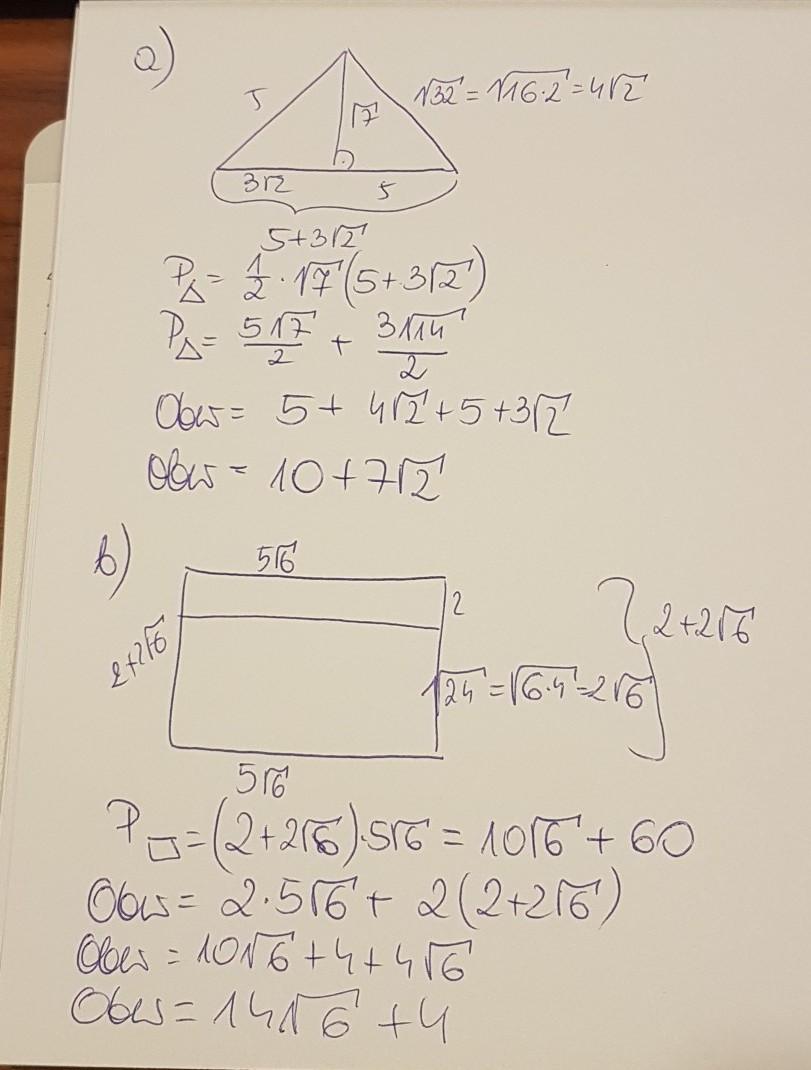 a)
5
√7
√32 = √16·2 = 4√2
3√2
5
5+3√2
P△ = 1/2 · √7 (5+3√2)
P△ = 5√7/2 + 3√14/2
Obw = 5 + 4√2 + 5 + 3√2
Obw = 10 + 7√2
b)
5√6
2
2+2√6
2+2√6
√24 = √6·4 = 2√6
5√6
P▭ = (2+2√6)·5√6 = 10√6 + 60
Obw = 2·5√6 + 2(2+2√6)
Obw = 10√6 + 4 + 4√6
Obw = 14√6 + 4